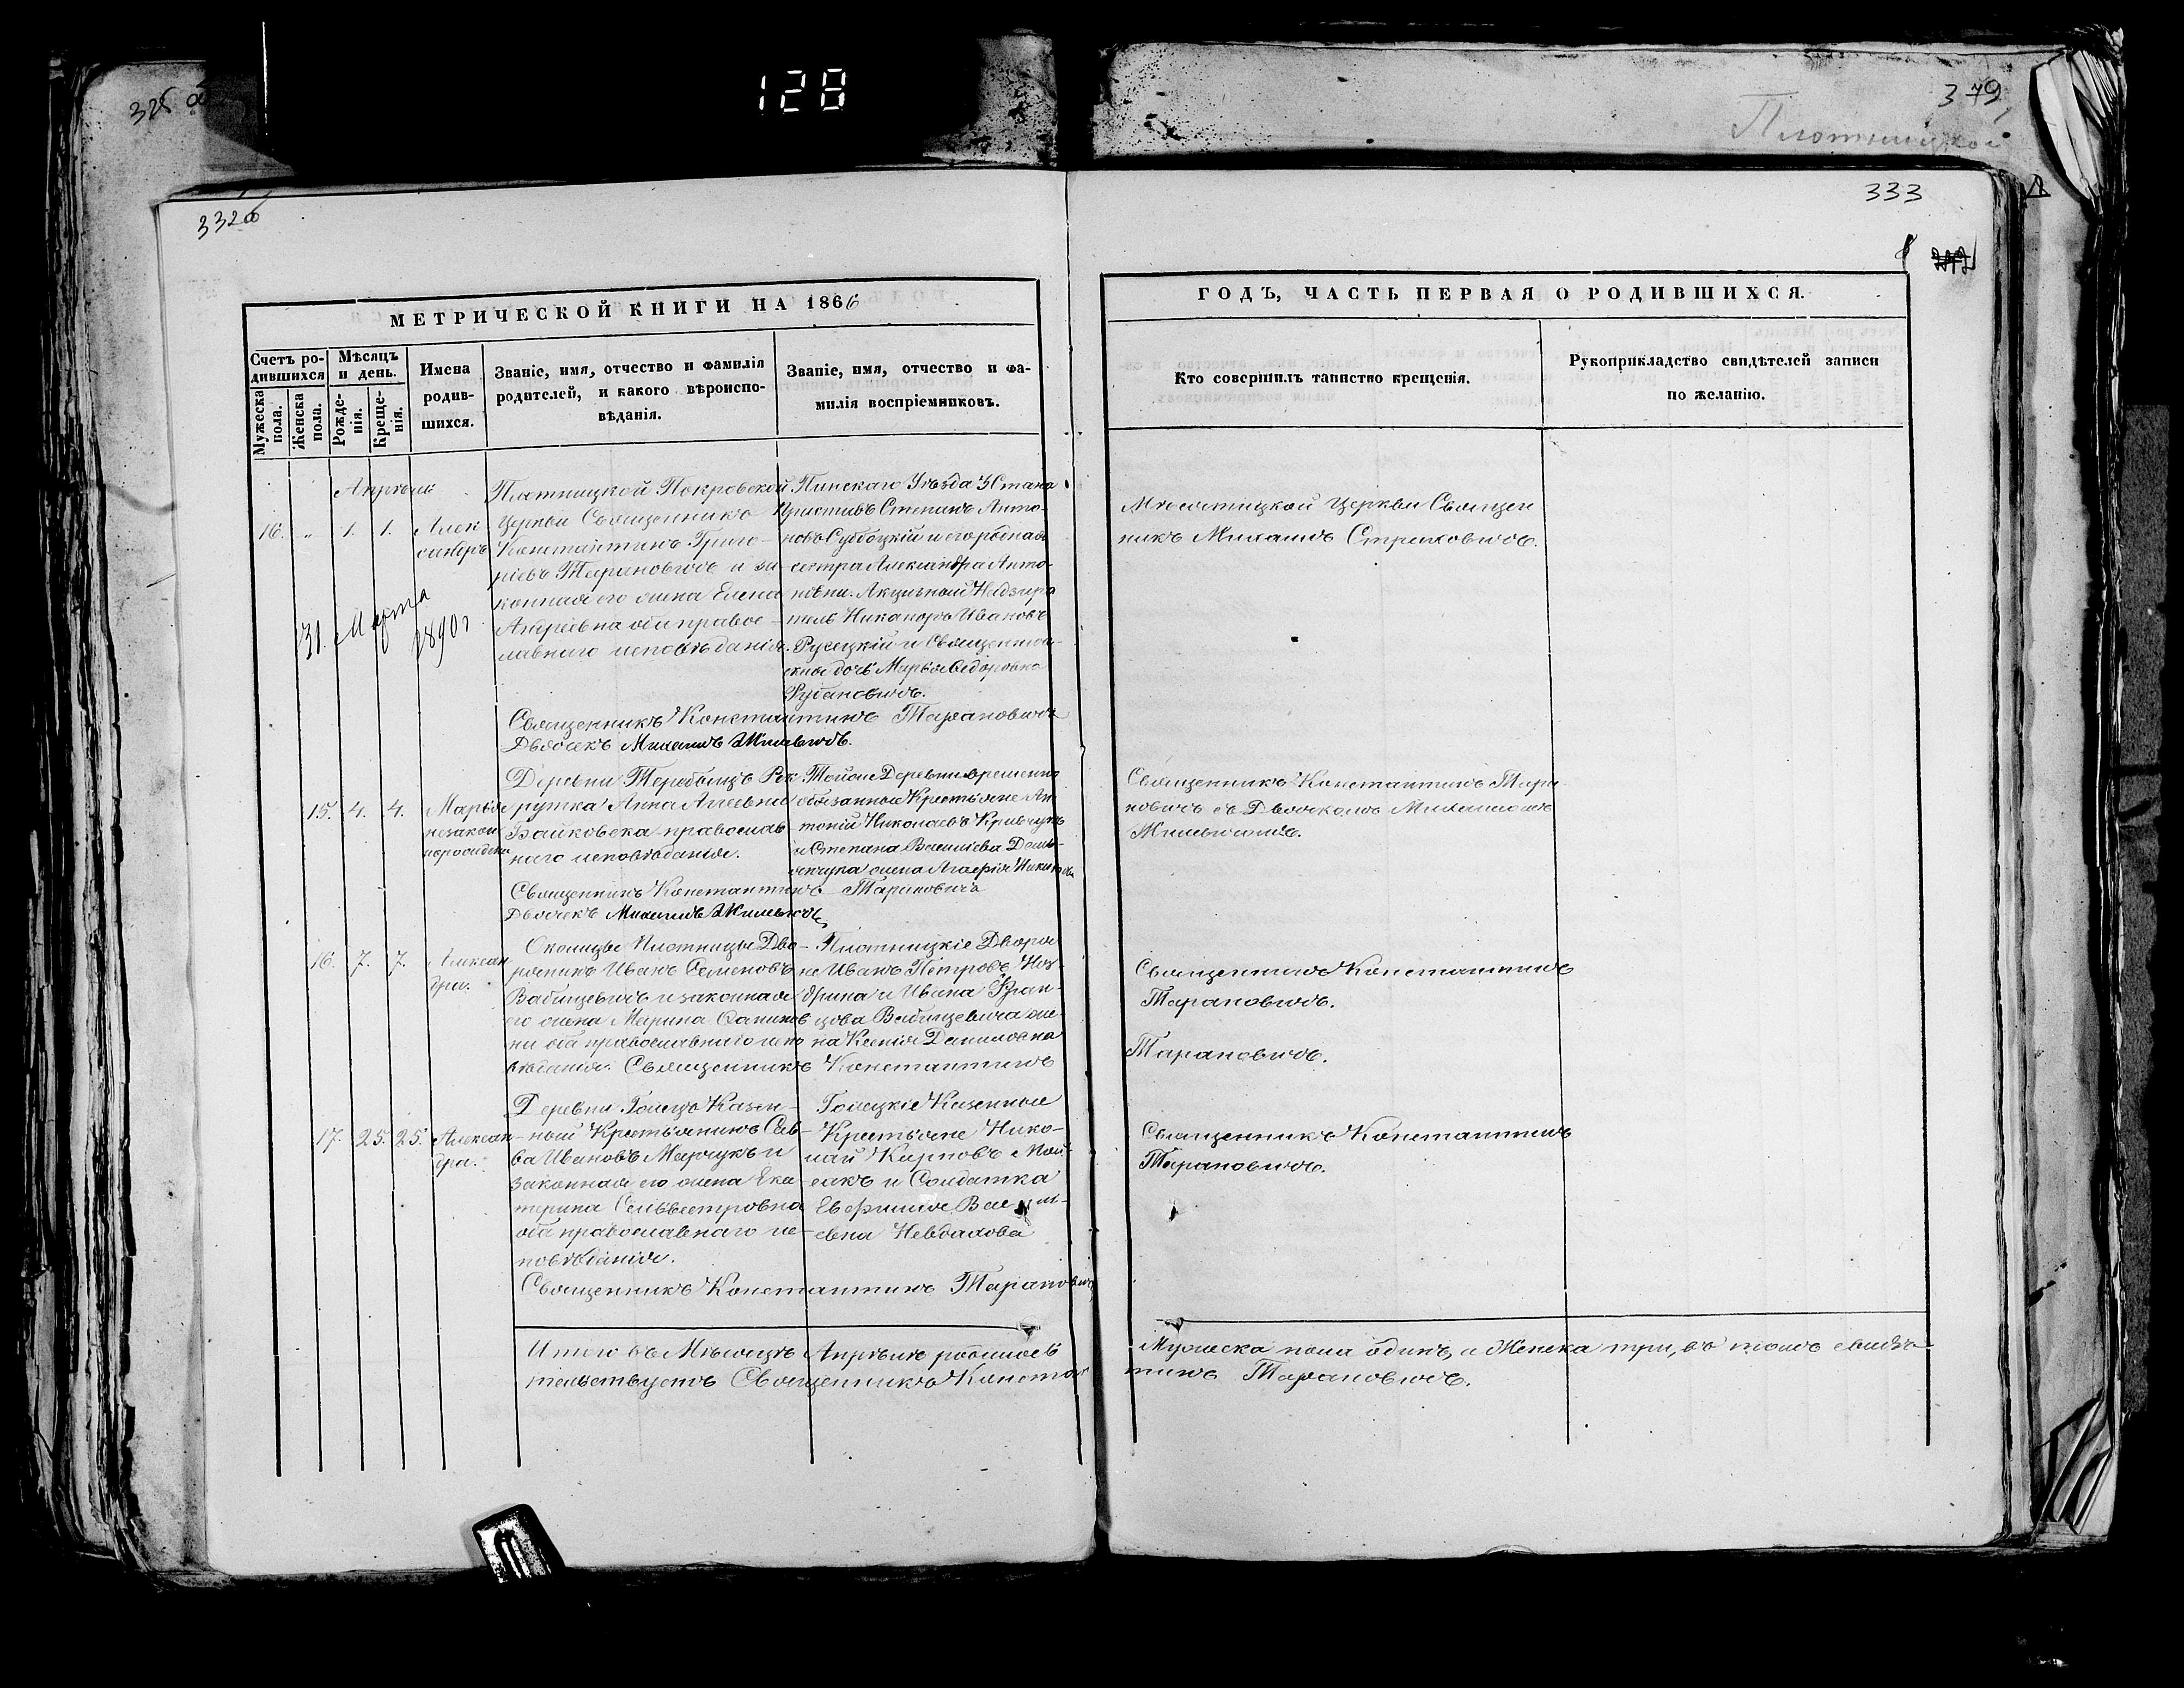 128
332об
379
Плотницкой
333
8
МЕТРИЧЕСКОЙ КНИГИ НА 1866
ГОДЪ, ЧАСТЬ ПЕРВАЯ О РОДИВШИХСЯ.
Счетъ ро-
дившихся
Мужеска пола.
Женска пола.
Мѣсяцъ
и день.
Рожде-
нія.
Креще-
нія.
Имена
родив-
шихся.
Званіе, имя, отчество и фамилія
родителей, и какого вѣроиспо-
вѣданія.
Званіе, имя, отчество и фа-
милія воспріемниковъ.
Кто совершилъ таинство крещенія.
Рукоприкладство свидѣтелей записи
по желанію.
Апрѣль
16. „ 1. 1.
Алек
сандръ
31. Марта
1890 г
Плотницкой Покровской
Церкви Священникъ
Константинъ Григо-
ріевъ Тарановичъ и за-
конная его жена Елена
Андреевна оба правос-
лавнаго исповѣданія.
Пинскаго Уѣзда 3 Стана
Приставъ Степанъ Анто-
новъ и его родная
сестра Александра Анто-
новна. Акцизный Надзира
тель Никаноръ Ивановъ
Русецкій и Священни-
ческая дочь Марья Ѳедоровна
Рубановичъ.
Церкви Священ
никъ Михаилъ Страховичъ.
Священникъ Константинъ Тарановичъ
Дьячекъ Михаилъ Жилевичъ.
15. 4. 4.
Марья
незакон
норожден
Деревни Теребень Рек
рутка Анна
православ
наго исповѣданія.
Тойже Деревни временно
обязанные Крестьяне Ан
тоній Николаевъ Кривчукъ
и Степана Васильева
жена Агафія
Священникъ Константинъ Тара
новичъ съ Дьячкомъ Михаиломъ
Жилевичемъ.
Священникъ Константинъ Тарановичъ
Дьячекъ Михаилъ Жилевичъ
16. 7. 7.
Алексан
дра.
Околицы Плотницы Дво-
рянинъ Иванъ Семеновъ
Вабищевичъ и законная
его жена Марина
оба православнаго испо
вѣданія. Священникъ Константинъ
Плотницкіе Дворя
не Иванъ Петровъ
и Ивана Фран-
цова Вабищевича же-
на Ксенія Даниловна
Священникъ Константинъ
Тарановичъ.
Тарановичъ.
17. 25. 25.
Алексан-
дра.
Деревни Гольцъ Казен-
ный Крестьянинъ Сав-
ва Ивановъ Марчукъ и
законная его жена Ека
терина Сельвестровна
оба православнаго ис-
повѣданія.
Гольцкіе Казенные
Крестьяне Нико-
лай Карповъ Мой-
сякъ и Солдатка
Евфимія Васи
евна Невдахова
Священникъ Константинъ
Тарановичъ.
Священникъ Константинъ Тарановичъ
Итого въ Мѣсяцѣ Апрѣлѣ родилось
Мужеска пола одинъ, а Женска три, въ томъ свидѣ-
тельствуетъ Священникъ Констан
тинъ Тарановичъ.